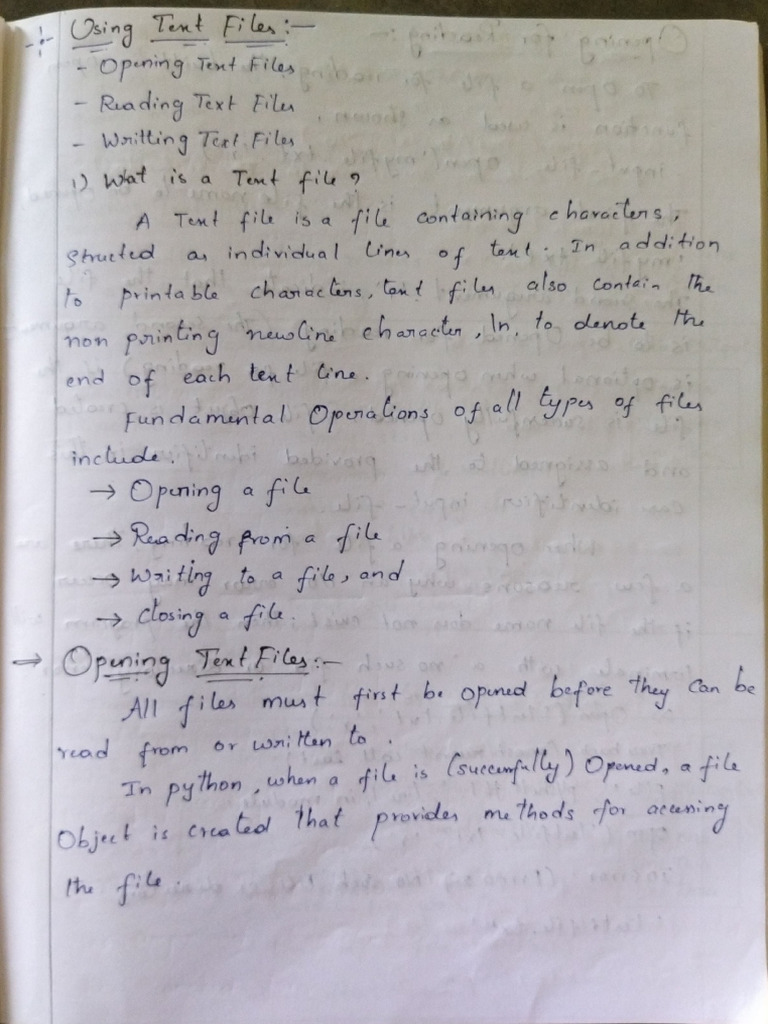 Using Text Files:-
- Opening Text Files
- Reading Text Files
- Writting Text Files
1) What is a Text file?
A Text file is a file containing characters,
structed as individual lines of text. In addition
to printable characters, text files also contain the
non printing newline character, \n, to denote the
end of each text line.
Fundamental Operations of all types of files
include.
→ Opening a file
→ Reading from a file
→ Writing to a file, and
→ Closing a file.
⇒ Opening Text Files:-
All files must first be opened before they can be
read from or written to.
In python, when a file is (successfully) Opened, a file
Object is created that provides methods for accessing
the file.